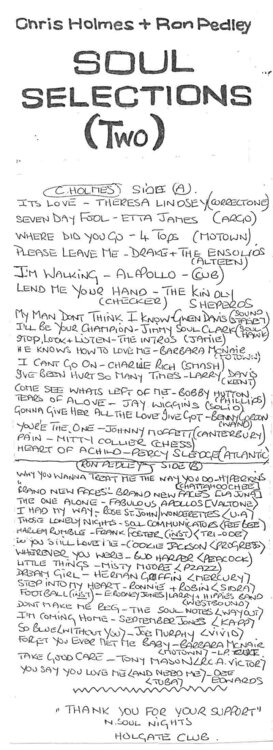 Chris Holmes + Ron Pedley
SOUL
SELECTIONS
(TWO)
(C. HOLMES) SIDE (A).
ITS LOVE - THERESA LINDSEY (CORRECTONE)
SEVEN DAY FOOL - ETTA JAMES (ARGO)
WHERE DID YOU GO - 4 TOPS (MOTOWN)
PLEASE LEAVE ME - DRAKE + THE ENSOLIDS
(ALTEEN)
I'M WALKING - AL APOLLO - (CUB)
LEND ME YOUR HAND - THE KINDLY
(CHECKER) SHEPERDS
MY MAN DONT THINK I KNOW GWEN DAVIS (SOUND
STREET)
I'LL BE YOUR CHAMPION - JIMMY SOUL CLARK (SOUL
HAWK)
STOP, LOOK + LISTEN - THE INTROS (JAMIE)
HE KNOWS HOW TO LOVE ME - BARBARA MCNAIR
(MOTOWN)
I CANT GO ON - CHARLIE RICH (SMASH)
IVE BEEN HURT SO MANY TIMES - LARRY DAVIS
(KENT)
COME SEE WHATS LEFT OF ME - BOBBY HUTTON
(PHILLIPS)
TEARS OF A LOVE - JAY WIGGINS (SOLID)
GONNA GIVE HER ALL THE LOVE IVE GOT - BENNY GORDON
(WAND)
YOU'RE THE ONE - JOHNNY MOFFETT (CANTERBURY)
PAIN - MITTY COLLIER (CHESS)
HEART OF A CHILD - PERCY SLEDGE (ATLANTIC)
(RON PEDLEY) SIDE (B)
WHY YOU WANNA TREAT ME THE WAY YOU DO - HYPERIONS
(CHATTAHOOCHEE)
BRAND NEW FACES - BRAND NEW FACES (LA JUNJ)
THE ONE ALONE - FABULOUS APOLLOS (VALTONE)
I HAD MY WAY - ROSE ST. JOHN/WONDERETTES (U.A)
THOSE LONELY NIGHTS - SOUL COMMUNICATORS (FEE BEE)
HARLEM RUMBLE - FRANK FOSTER (INST) - (TRI-ODE)
DO YOU STILL LOVE ME - COOKIE JACKSON (PROGRESS)
WHEREVER YOU WERE - BUD HARPER (PEACOCK)
LITTLE THINGS - MISTY MOORE (PZAZZ)
DREAM GIRL - HERMAN GRIFFIN (MERCURY)
STEP INTO MY HEART - RONNIE + ROBYN (SIDRA)
FOOTBALL (INST) - E. RODNEY JONES LARRY + HIPPIES BAND
(WESTBOUND)
DONT MAKE ME BEG - THE SOUL NOTES (WAY OUT)
I'M COMING HOME - SEPTEMBER JONES (KAPP)
SO BLUE (WITHOUT YOU) - JOE MURPHY (VIVID)
FORGET YOU EVER MET ME BABY - BARBARA MCNAIR
(MOTOWN) - LP. TRACK
TAKE GOOD CARE - TONY MASON (R.C.A. VICTOR)
YOU SAY YOU LOVE ME (AND NEED ME) - DEE
(TUBA) EDWARDS
"THANK YOU FOR YOUR SUPPORT"
N. SOUL NIGHTS
HOLGATE CLUB.